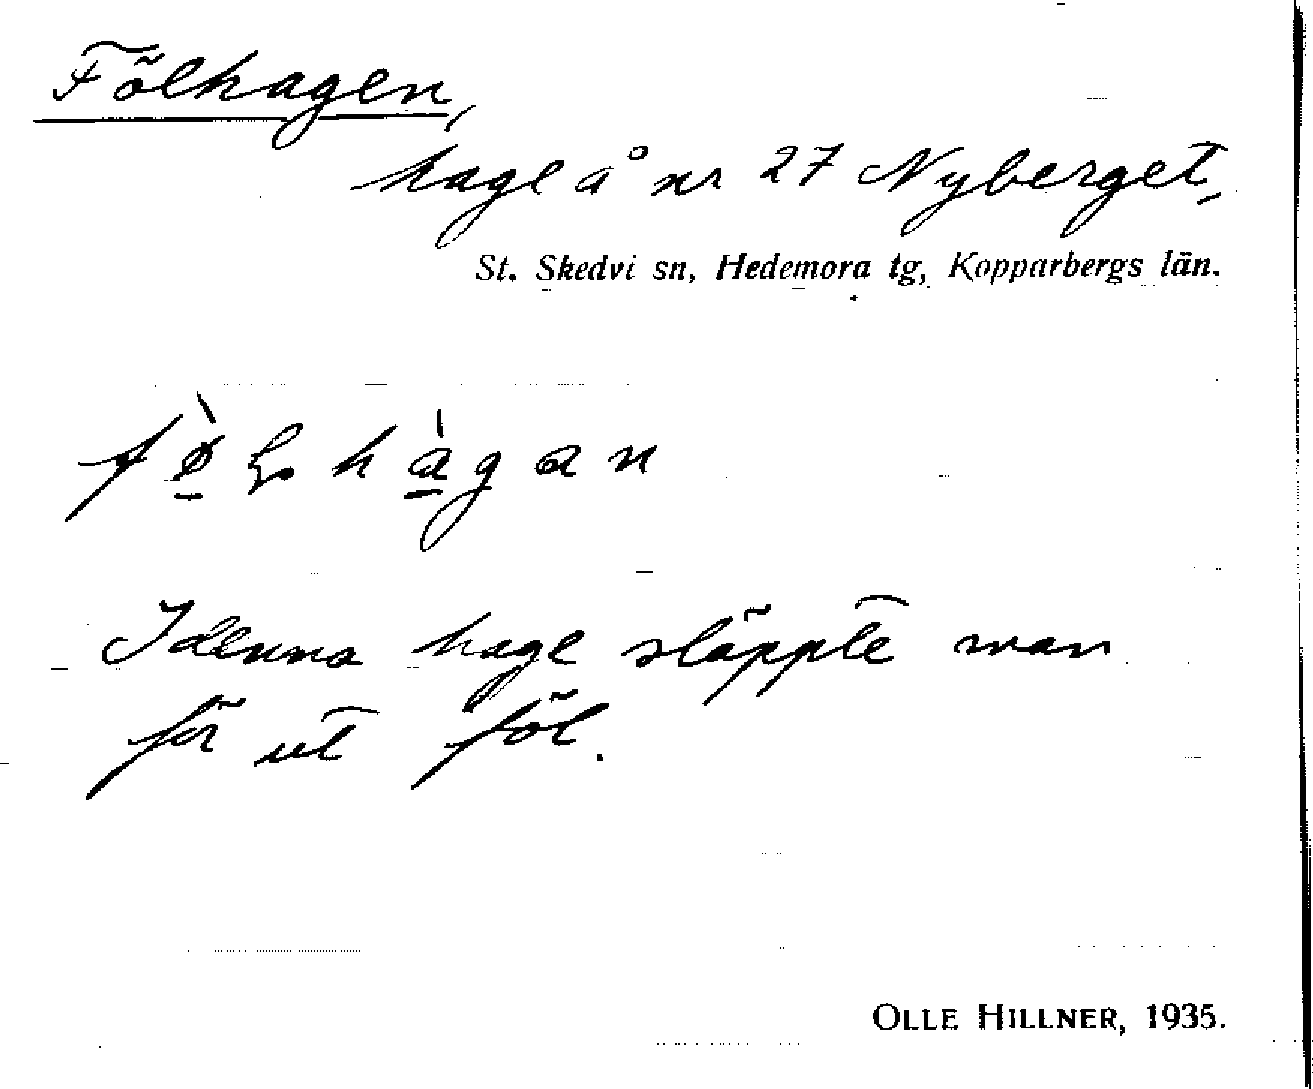 Fölhagen,
hage å nr 27 Nyberget,
St. Skedvi sn, Hedemora tg, Kopparbergs län.
fø̱̀ɽhà̱gan
I denna hage släppte man
för ut föl.
OLLE HILLNER, 1935.